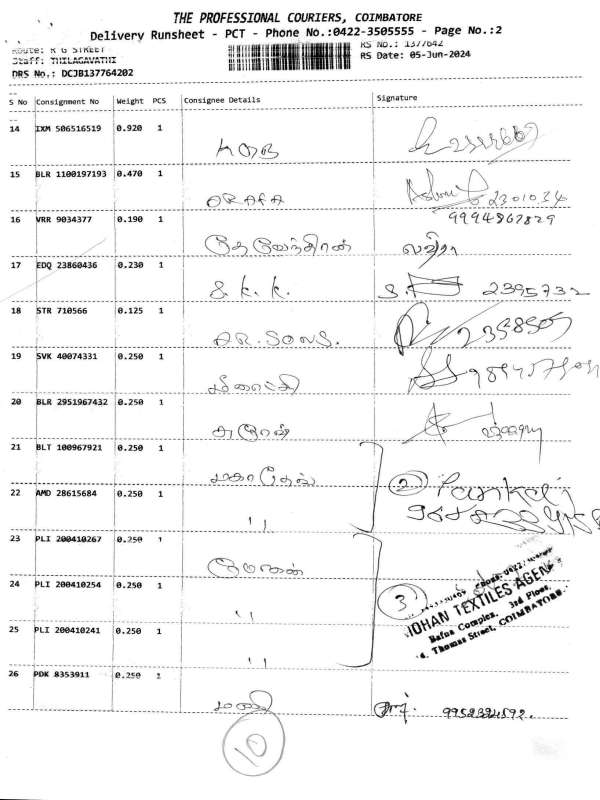 THE PROFESSIONAL COURIERS, COIMBATORE
Delivery Runsheet - PCT - Phone No.:0422-3505555 - Page No.:2
Route: R G STREET
RS No.: 1377642
Staff: THILAGAVATHI
RS Date: 05-Jun-2024
DRS No.: DCJB137764202
S No Consignment No Weight PCS Consignee Details Signature
14 IXM 506516519 0.920 1
15 BLR 1100197193 0.470 1
ARAFA 2301034
16 VRR 9034377 0.190 1 9994867829
தேவேந்திரன்
17 EDQ 23860436 0.230 1
S. K. K. 2395732
18 STR 710566 0.125 1
AR. SONS.
19 SVK 40074331 0.250 1
மீனாட்சி
20 BLR 2951967432 0.250 1
சுரேஷ்
21 BLT 100967921 0.250 1
மகாதேவ் 2 Pankaj
22 AMD 28615684 0.250 1
"
23 PLI 200410267 0.250 1
மோகன்
24 PLI 200410254 0.250 1 3
" MOHAN TEXTILES AGENCY
Bafna Complex, 3rd Floor,
25 PLI 200410241 0.250 1 Thomas Street, COIMBATORE
"
26 PDK 8353911 0.250 1
மணி
10